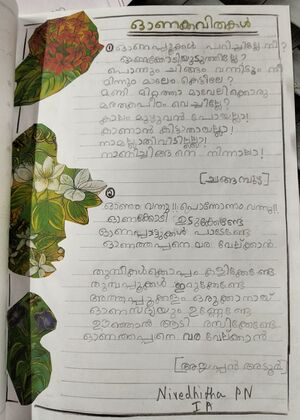 ഓണക്കവിതകൾ
① ഓണപ്പൂക്കൾ പറിച്ചില്ലേ നീ ?
ഓണക്കോടിയുടുത്തില്ലേ ?
പൊന്നും ചിങ്ങം വന്നിട്ടും നീ
മിന്നും മാലേം കെട്ടീലേ ?
മണി മിറ്റത്താ മാവേലിക്കൊരു
മരതകപീഠം വെച്ചില്ലേ?
കാലം മുഴുവൻ പോയല്ലോ!
കാണാൻ കിട്ടാതായല്ലോ!
നാമല്ലാതിവിടില്ലല്ലോ!
നാണിച്ചിങ്ങനെ നിന്നാലോ!
[ചങ്ങമ്പുഴ]
② ഓണം വന്നു!! പൊന്നോണം വന്നു!!
ഓണക്കോടി ഉടുക്കേണ്ടേ
ഓണപ്പാട്ടുകൾ പാടേണ്ടേ
ഓണത്തപ്പനെ വര വേല്ക്കാൻ.
തുമ്പികൾക്കൊപ്പം കളിക്കേണ്ടേ
തുമ്പപ്പൂക്കൾ ഇറുക്കേണ്ടേ
അത്തപ്പൂക്കളം ഒരുക്കാനായ്
ഓണസദ്യയും ഉണ്ണേണ്ടേ
ഊഞ്ഞാൽ ആടി രസിക്കേണ്ടേ
ഓണത്തപ്പനെ വര വേല്ക്കാൻ
[അയ്യപ്പൻ അടൂർ]
Nivedhitha PN
I A